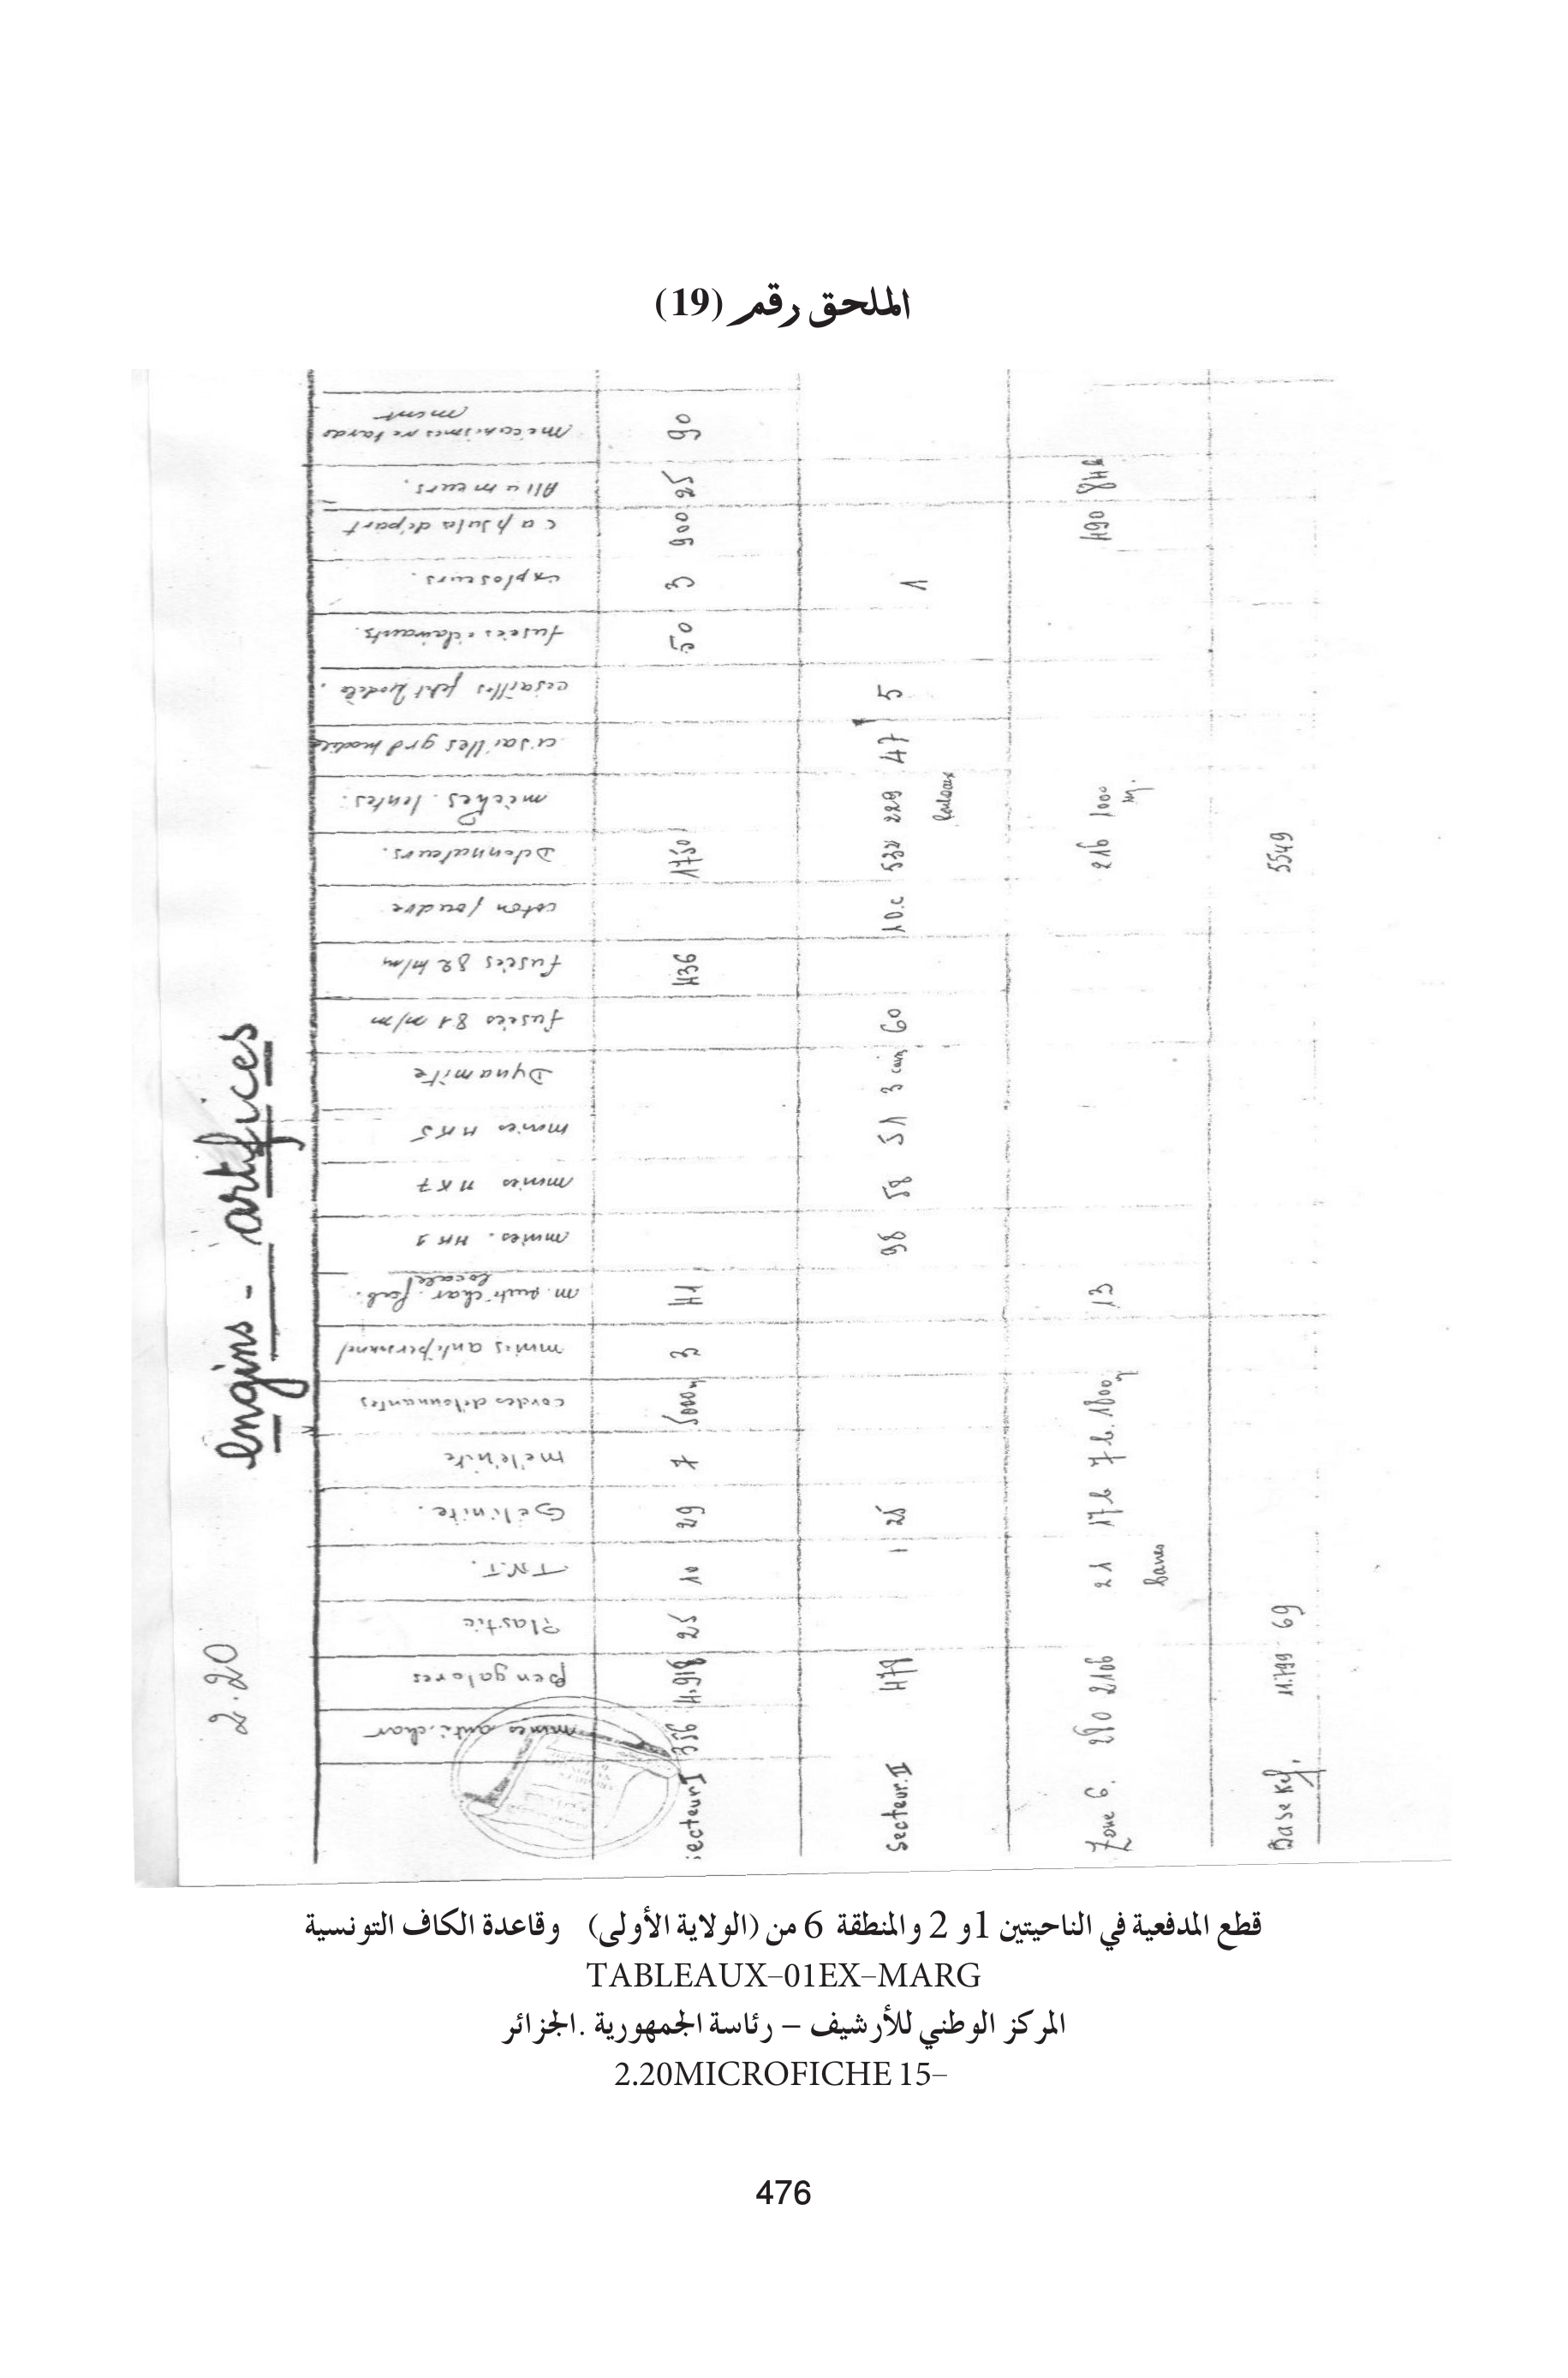 الملحق رقم (19)
2.20
engins - artifices
mines anti.char
Bengalores
Plastic
T.N.T.
Gélinite.
méléinite
cordes détonnantes
mines antipersonnel
m. anti char. fab. locale
mines. MK 1
mines MK 7
mines MK 5
Dynamite
fusées 81 m/m
fusées 82 m/m
coton poudre
Détonnateurs.
mèches. lentes.
cisailles grd modèle
cisailles petit modèle.
fusées éclairants.
exploseurs.
capsule départ
Allumeurs.
mécanismes retardement
secteur I 356 4.918 25 10 29 7 5000 m 3 41 436 1750 50 3 900 25 90
Secteur. II 479 25 98 58 51 3 60 10.c 532 229 rouleaux 47 5 1
Zone 6. 280 2106 21 barres 17 b 7 b. 1800 m 13 216 1000 m. 490 842
Base Kef. 11.799 69 5549
قطع المدفعية في الناحيتين 1و 2 والمنطقة 6 من (الولاية الأولى) وقاعدة الكاف التونسية
TABLEAUX–01EX–MARG
المركز الوطني للأرشيف – رئاسة الجمهورية .الجزائر
2.20MICROFICHE 15–
476